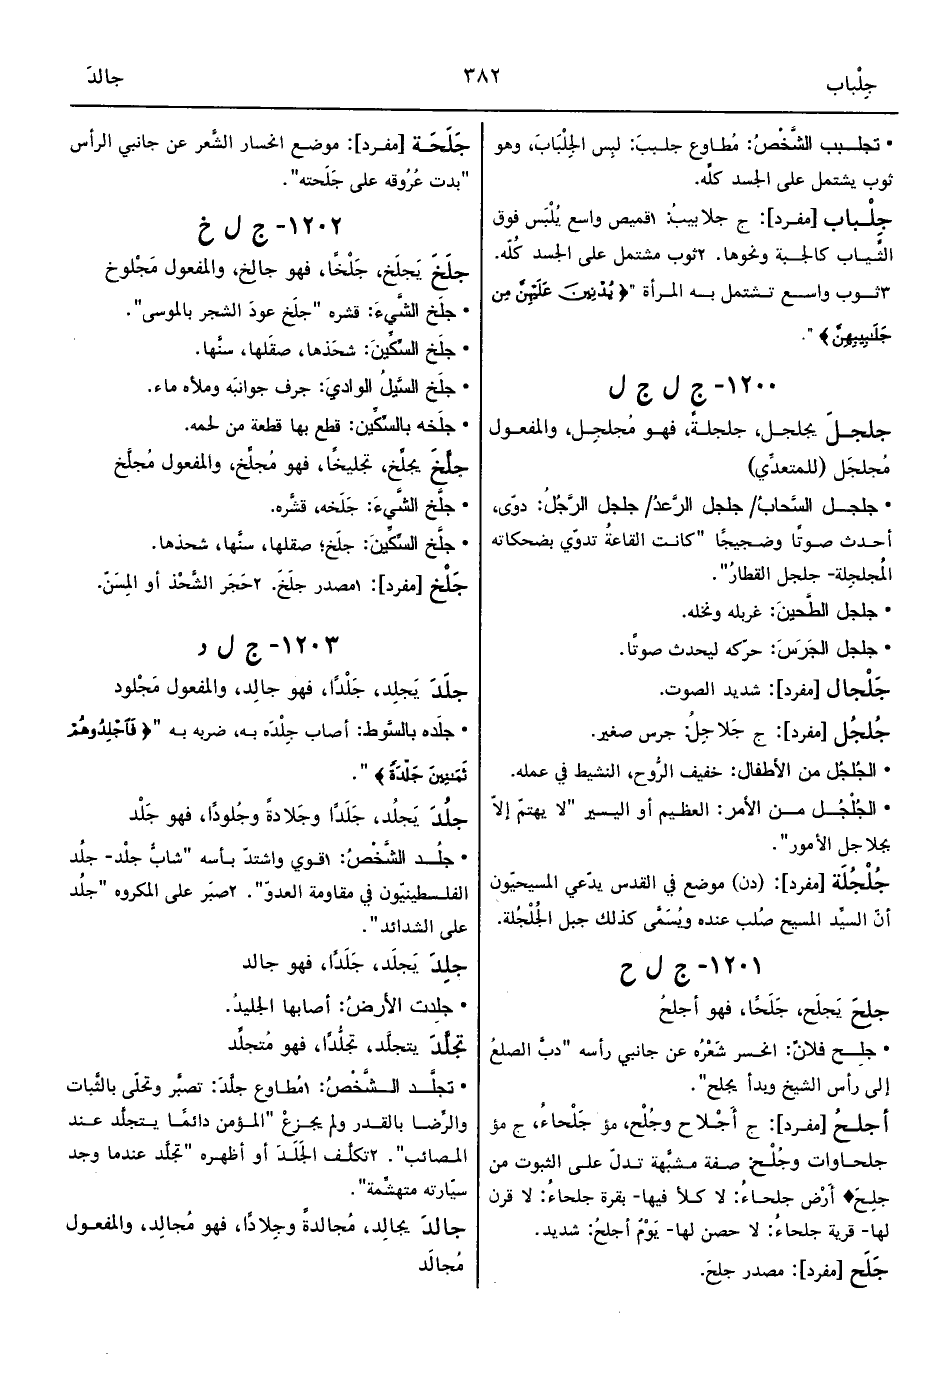 جِلْباب
٣٨٢
جالدَ
• تجلـبب الشَّخْصُ: مُطاوع جلببَ: لبِس الجِلْبَابَ، وهو
ثوب يشتمل على الجسد كلّه.
جِلْبـاب [مفـرد]: ج جلابيبُ: ١قميص واسع يُلْبَس فوق
الثِّيـاب كالجـبة ونحوها. ٢ثوب مشتمل على الجسد كُلّه.
٣ثـوب واسـع تـشتمل بـه المـرأة "﴿ يُدْنِينَ عَلَيْهِنَّ مِن
جَلَٰبِيبِهِنَّ ﴾".
١٢٠٠- ج ل ج ل
جلجـلَ يجلجـل، جلجلـةً، فهـو مُجلجِـل، والمفعـول
مُجلجَل (للمتعدِّي)
• جلجـل السَّحابُ/ جلجل الرَّعدُ/ جلجل الرَّجُلُ: دوّى،
أحـدث صـوتًا وضـجيجًا "كانـت القاعةُ تدوّي بضحكاته
المُجلجِلة- جلجل القطارُ".
• جلجل الطَّحينَ: غربله ونخله.
• جلجل الجَرَسَ: حرّكه ليحدث صوتًا.
جَلْجال [مفرد]: شديد الصوت.
جُلْجُل [مفرد]: ج جَلاجِلُ: جرس صغير.
• الجُلجُل من الأطفال: خفيف الرُّوح، النشيط في عمله.
• الجُلْجُـل مـن الأمر: العظيم أو اليسير "لا يهتمّ إلاّ
بجلاجل الأمور".
جُلْجُلَة [مفرد]: (دن) موضع في القدس يدّعي المسيحيّون
أنّ السيِّد المسيح صُلب عنده ويُسَمَّى كذلك جبل الجُلْجُلة.
١٢٠١- ج ل ح
جلِحَ يَجلَح، جَلَحًا، فهو أجلحُ
• جلـح فلانٌ: انحسر شَعْرُه عن جانبي رأسه "دبَّ الصلعُ
إلى رأس الشيخ وبدأ يجلح".
أجلـحُ [مفـرد]: ج أَجْلاح وجُلْح، مؤ جَلْحاءُ، ج مؤ
جلحـاوات وجُلْـح: صـفة مـشبَّهة تـدلّ علـى الثبوت من
جلِحَ♦ أَرْض جلحـاءُ: لا كـلأ فيها- بقرة جلحاءُ: لا قرن
لها- قرية جلحاءُ: لا حصن لها- يَوْمٌ أجلحُ: شديد.
جَلَح [مفرد]: مصدر جلِحَ.
جَلَحَـة [مفـرد]: موضـع انحسار الشَّعر عن جانبي الرأس
"بدت عُرُوقه على جَلَحته".
١٢٠٢- ج ل خ
جلَخَ يَجلَخ، جَلْخًا، فهو جالخ، والمفعول مَجْلوخ
• جلَخ الشَّيءَ: قشره "جلَخ عودَ الشجر بالموسى".
• جلَخ السِّكِّينَ: شحَذها، صقَلها، سنَّها.
• جلَخ السَّيلُ الواديَ: جرف جوانبَه وملأه ماء.
• جلَخه بالسِّكِّين: قطع بها قطعة من لحمه.
جلَّخَ يجلِّخ، تجليخًا، فهو مُجلِّخ، والمفعول مُجلَّخ
• جلَّخ الشَّيءَ: جَلَخه، قشَّره.
• جلَّخ السِّكِّينَ: جلَخ؛ صقلها، سنَّها، شحذها.
جَلْخ [مفرد]: ١مصدر جلَخَ. ٢حَجَر الشَّحْذ أو المِسَنّ.
١٢٠٣- ج ل د
جلَدَ يَجلِد، جَلْدًا، فهو جالِد، والمفعول مَجْلود
• جلَده بالسَّوط: أصاب جِلْدَه بـه، ضربه به "﴿ فَٱجْلِدُوهُمْ
ثَمَٰنِينَ جَلْدَةً ﴾".
جلُدَ يَجلُد، جَلَدًا وجَلادةً وجُلودًا، فهو جَلْد
• جلُـد الشَّخْصُ: ١قوي واشتدّ بـأسه "شابٌّ جلْد- جلُد
الفلـسطينيّون في مقاومة العدوّ". ٢صبَر على المكروه "جلُد
على الشدائد".
جلِدَ يَجلَد، جَلَدًا، فهو جالد
• جلِدت الأرضُ: أصابها الجليدُ.
تجلَّدَ يتجلَّد، تجلُّدًا، فهو مُتجلِّد
• تـجلَّـد الـشَّخْصُ: ١مُطـاوع جلَّدَ: تصبَّر وتحلّى بالثَّبات
والرِّضـا بالقـدر ولم يجـزعْ "المـؤمن دائمًـا يـتجلّد عـند
المـصائب". ٢تكلَّـف الجَلَدَ أو أظهره "تجلّد عندما وجد
سيّارته متهشِّمة".
جالدَ يجالِد، مُجالدةً وجِلادًا، فهو مُجالِد، والمفعول
مُجالَد